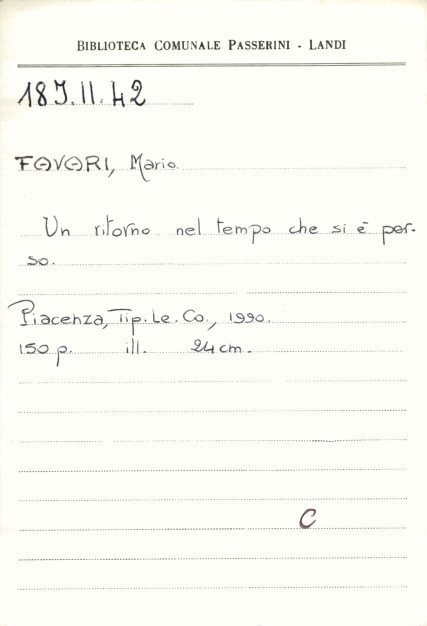 BIBLIOTECA COMUNALE PASSERINI - LANDI
18J.II.42
FAVARI, Mario
Un ritorno nel tempo che si è per-
so.
Piacenza, Tip. Le. Co., 1990.
150 p. ill. 24 cm.
C